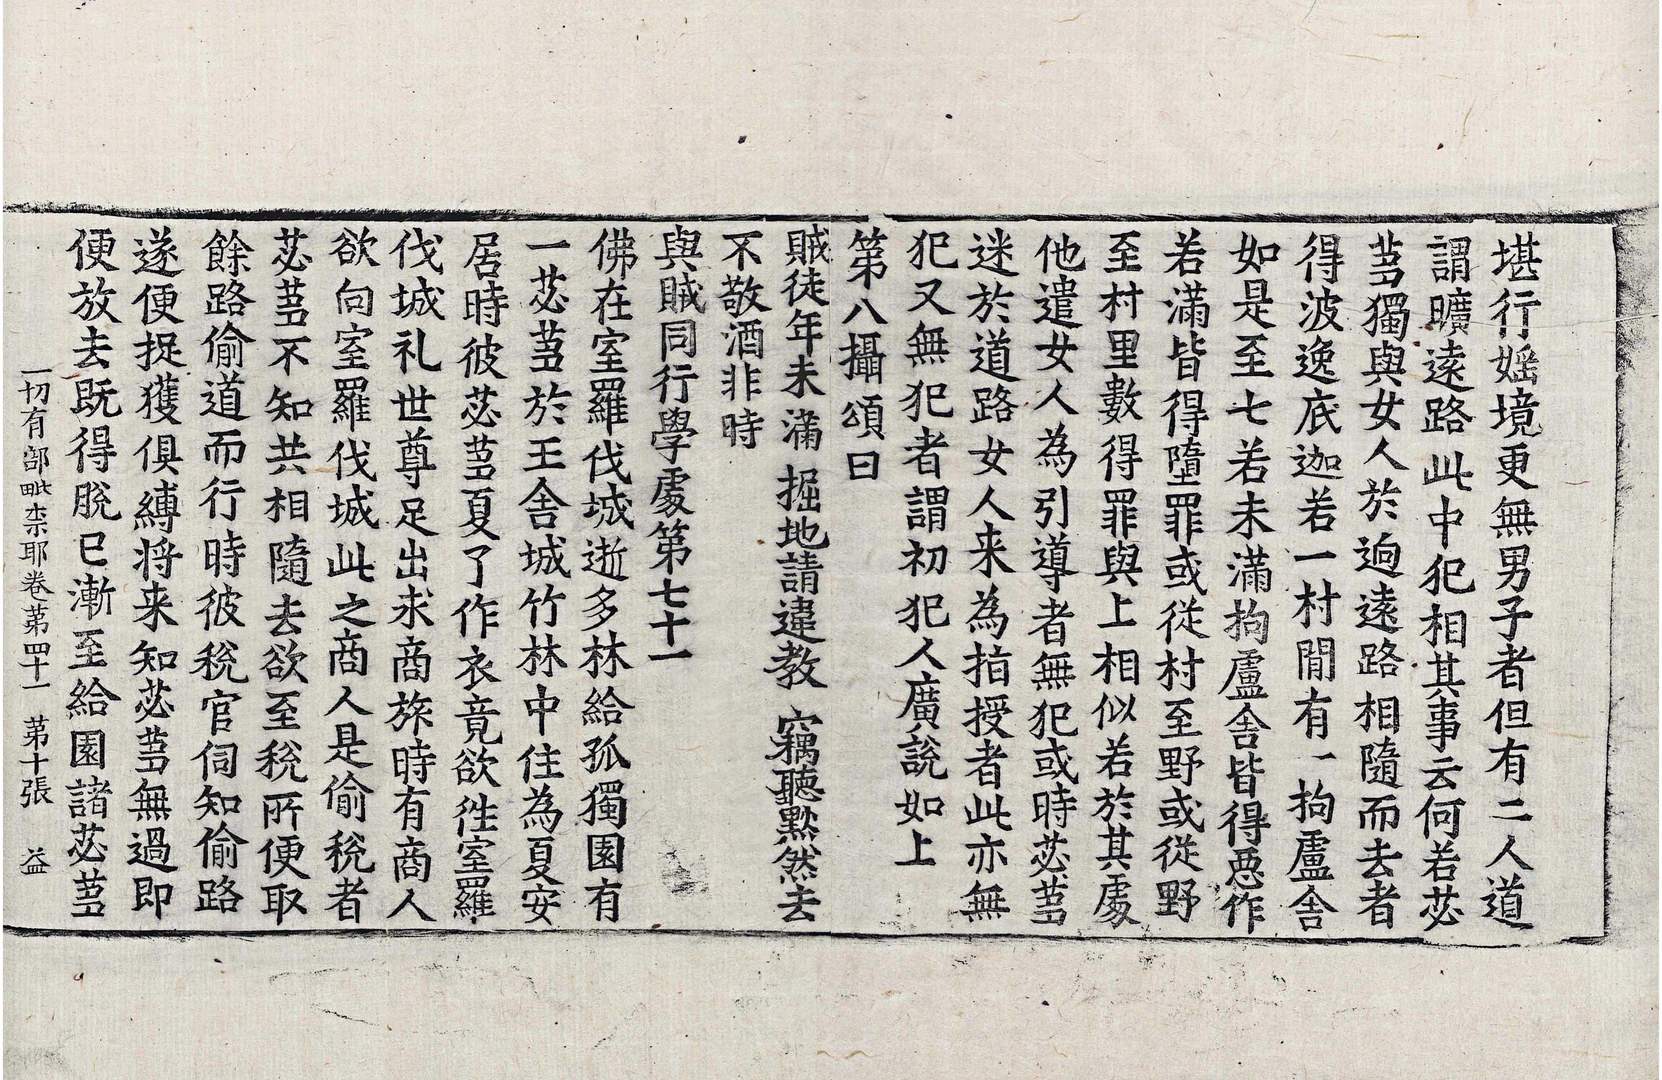 堪行婬境更無男子者但有二人道
謂曠遠路此中犯相其事云何若苾
蒭獨與女人於逈遠路相隨而去者
得波逸底迦若一村閒有一拘盧舍
如是至七若未滿拘盧舍皆得惡作
若滿皆得墮罪或從村至野或從野
至村里數得罪與上相似若於其處
他遣女人為引導者無犯或時苾蒭
迷於道路女人来為指授者此亦無
犯又無犯者謂初犯人廣說如上
第八攝頌曰
賊徒年未滿 掘地請違教 竊聽默然去
不敬酒非時
與賊同行學處第七十一
佛在室羅伐城逝多林給孤獨園有
一苾蒭於王舍城竹林中住為夏安
居時彼苾蒭夏了作衣竟欲徃室羅
伐城礼世尊足出求商旅時有商人
欲向室羅伐城此之商人是偷稅者
苾蒭不知共相隨去欲至稅所便取
餘路偷道而行時彼稅官伺知偷路
遂便捉獲俱縛将来知苾蒭無過即
便放去既得脫已漸至給園諸苾蒭
一切有部毗柰耶卷苐四十一 苐十張 益